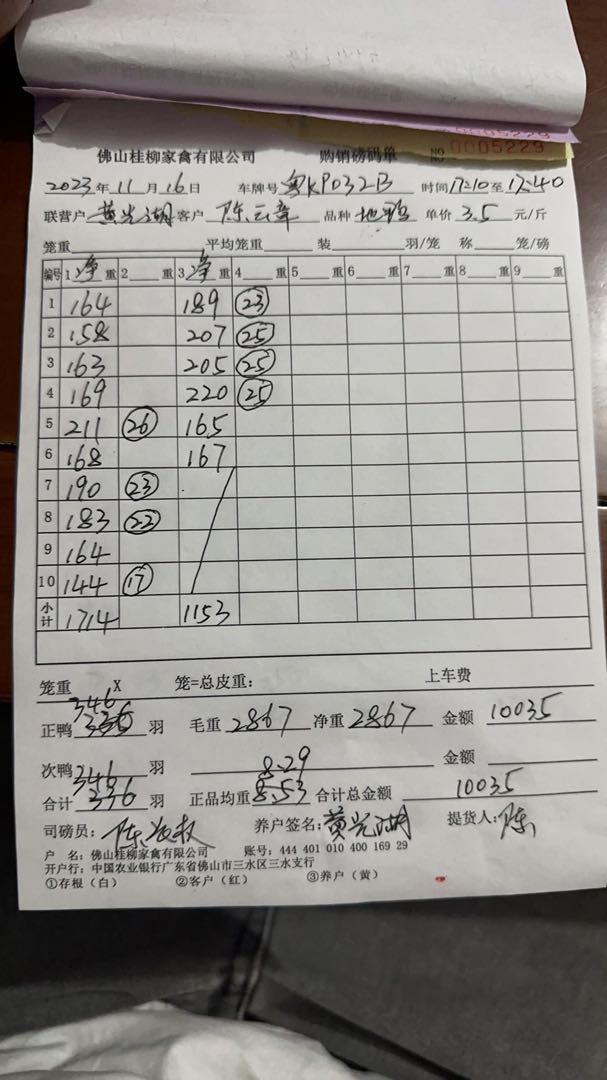 0005229
佛山桂柳家禽有限公司 购销磅码单 NO 0005229
2023年11月16日 车牌号 粤KP032B 时间17:10至17:40
联营户 黄光湖 客户 陈云章 品种 单价 3.5 元/斤
笼重 平均笼重 装 羽/笼 称 笼/磅
编号 1 净 重 2 重 3 净 重 4 重 5 重 6 重 7 重 8 重 9 重
1 164 189 23
2 158 207 25
3 163 205 25
4 169 220 25
5 211 26 165
6 168 167
7 190 23
8 183 22
9 164
10 144 17
小计 1714 1153
笼重 X 笼=总皮重: 上车费
346
正鸭 336 羽 毛重 2867 净重 2867 金额 10035
次鸭 羽 金额
346 8.29
合计 336 羽 正品均重 8.53 合计总金额 10035
司磅员: 养户签名: 黄光湖 提货人: 陈
户 名: 佛山桂柳家禽有限公司 账号: 444 401 010 400 169 29
开户行: 中国农业银行广东省佛山市三水区三水支行
①存根（白） ②客户（红） ③养户（黄）